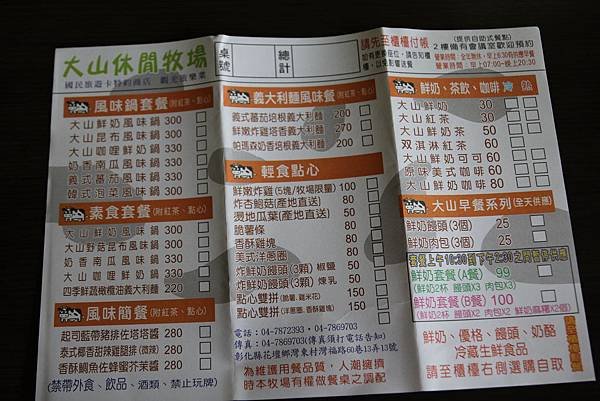 大山休閒牧場
國民旅遊卡特約商店
桌號
總計
請先至櫃檯付帳
(提供自助式餐點)
2樓備有會議室歡迎預約
營業時間:早上07:00-晚上20:30
風味鍋套餐(附紅茶、點心)
大山鮮奶風味鍋 300
大山昆布風味鍋 300
大山咖哩鮮奶鍋 300
奶香南瓜風味鍋 300
義式蕃茄風味鍋 300
韓式泡菜風味鍋 300
素食套餐(附紅茶、點心)
大山鮮奶風味鍋 300
大山野菇昆布風味鍋 300
奶香南瓜風味鍋 300
大山咖哩鮮奶鍋 300
四季鮮蔬橄欖油義大利麵 220
風味簡餐(附紅茶、點心)
起司藍帶豬排佐塔塔醬 280
泰式椰香甜辣雞腿排(微辣) 280
香酥鯛魚佐蜂蜜芥茉醬 280
(禁帶外食、飲品、酒類、禁止玩牌)
義大利麵風味餐(附紅茶、點心)
義式蕃茄培根義大利麵 200
鮮嫩炸雞塔香義大利麵 270
帕瑪森奶香培根義大利麵 200
輕食點心
鮮嫩炸雞(5塊/牧場限量) 100
炸杏鮑菇(產地直送) 50
燙地瓜葉(產地直送) 50
脆薯條 50
香酥雞塊 50
美式洋蔥圈 50
炸鮮奶饅頭(3顆) 椒鹽 50
炸鮮奶饅頭(3顆) 煉乳 50
點心雙拼(脆薯、雞米花) 50
點心雙拼(洋蔥圈、香酥雞塊) 50
電話:04-7872393・04-7869703
傳真:04-7869703(傳真須打電話告知)
彰化縣花壇鄉灣東村灣福路60巷13弄13號
為維護用餐品質,人潮擁擠
時本牧場有權做餐桌之調配
鮮奶、茶飲、咖啡 冷 熱
大山鮮奶 30
大山紅茶 30
大山鮮奶茶 50
双淇淋紅茶 60
大山鮮奶可可 60
原味美式咖啡 60
大山鮮奶咖啡 80
大山早餐系列(全天供應)
鮮奶饅頭(3個) 25
鮮奶肉包(3個) 25
套餐上午10:30到下午2:30之間暫停供應
鮮奶套餐(A餐) 99
(鮮奶2杯 饅頭X3 肉包X3)
鮮奶套餐(B餐) 100
鮮奶、優格、饅頭、奶酪
冷藏生鮮食品
請至櫃檯右側選購自取